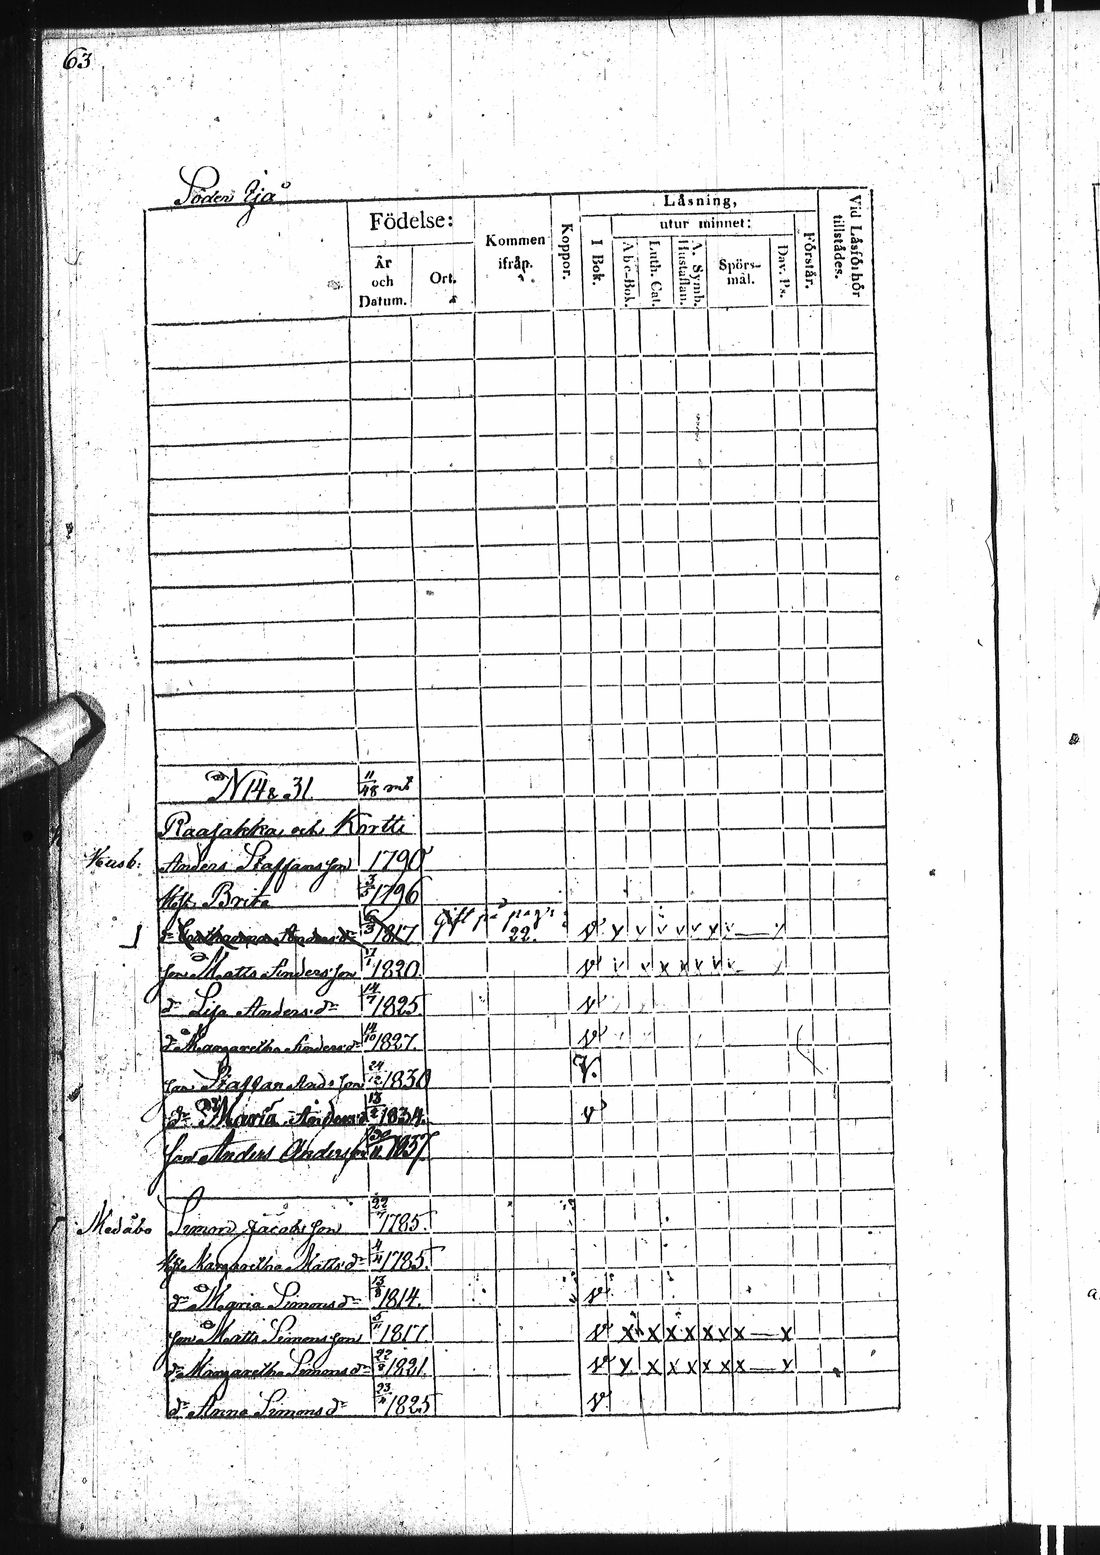 63
Söder Yjå
Födelse:
År och Datum.
Ort.
Kommen ifrån.
Koppor.
Låsning,
I Bok.
utur minnet:
Abc-Bok.
Luth. Cat.
A. Symb. Hustaflan.
Spörsmål.
Dav. Ps.
Förstår.
Vid Låsförhör tillstådes.
N 14 & 31. 11/48 mtl
Raajakka och Kortti
Husb: Anders Staffansson 1790
Hust. Brita 3/5 1796
dr Catharina Andersdr 6/3 1817 Gift på pag: 22. v v v v v v x v — v
son Matts Andersson 1820. v v v x x v v v
dr Lisa Anders dr 14/7 1825. v
dr Margaretha Andersdr 14/10 1827. v
son Staffan Ands son 24/12 1830 V.
dr Maria Andersd 13/2 1834. v
son Anders Andersson 30/11 1837.
Medåbo Simon Jacobsson 22/7 1785.
Hu Margaretha Mattsdr 4/4 1785.
dr Maria Simonsdr 13/8 1814. v
son Matts Simonsson 5/11 1817 v x x x x x x x — x
dr Margaretha Simonsdr 22/8 1821. v x x x x x x — x
dr Anna Simonsdr 23/4 1825 v